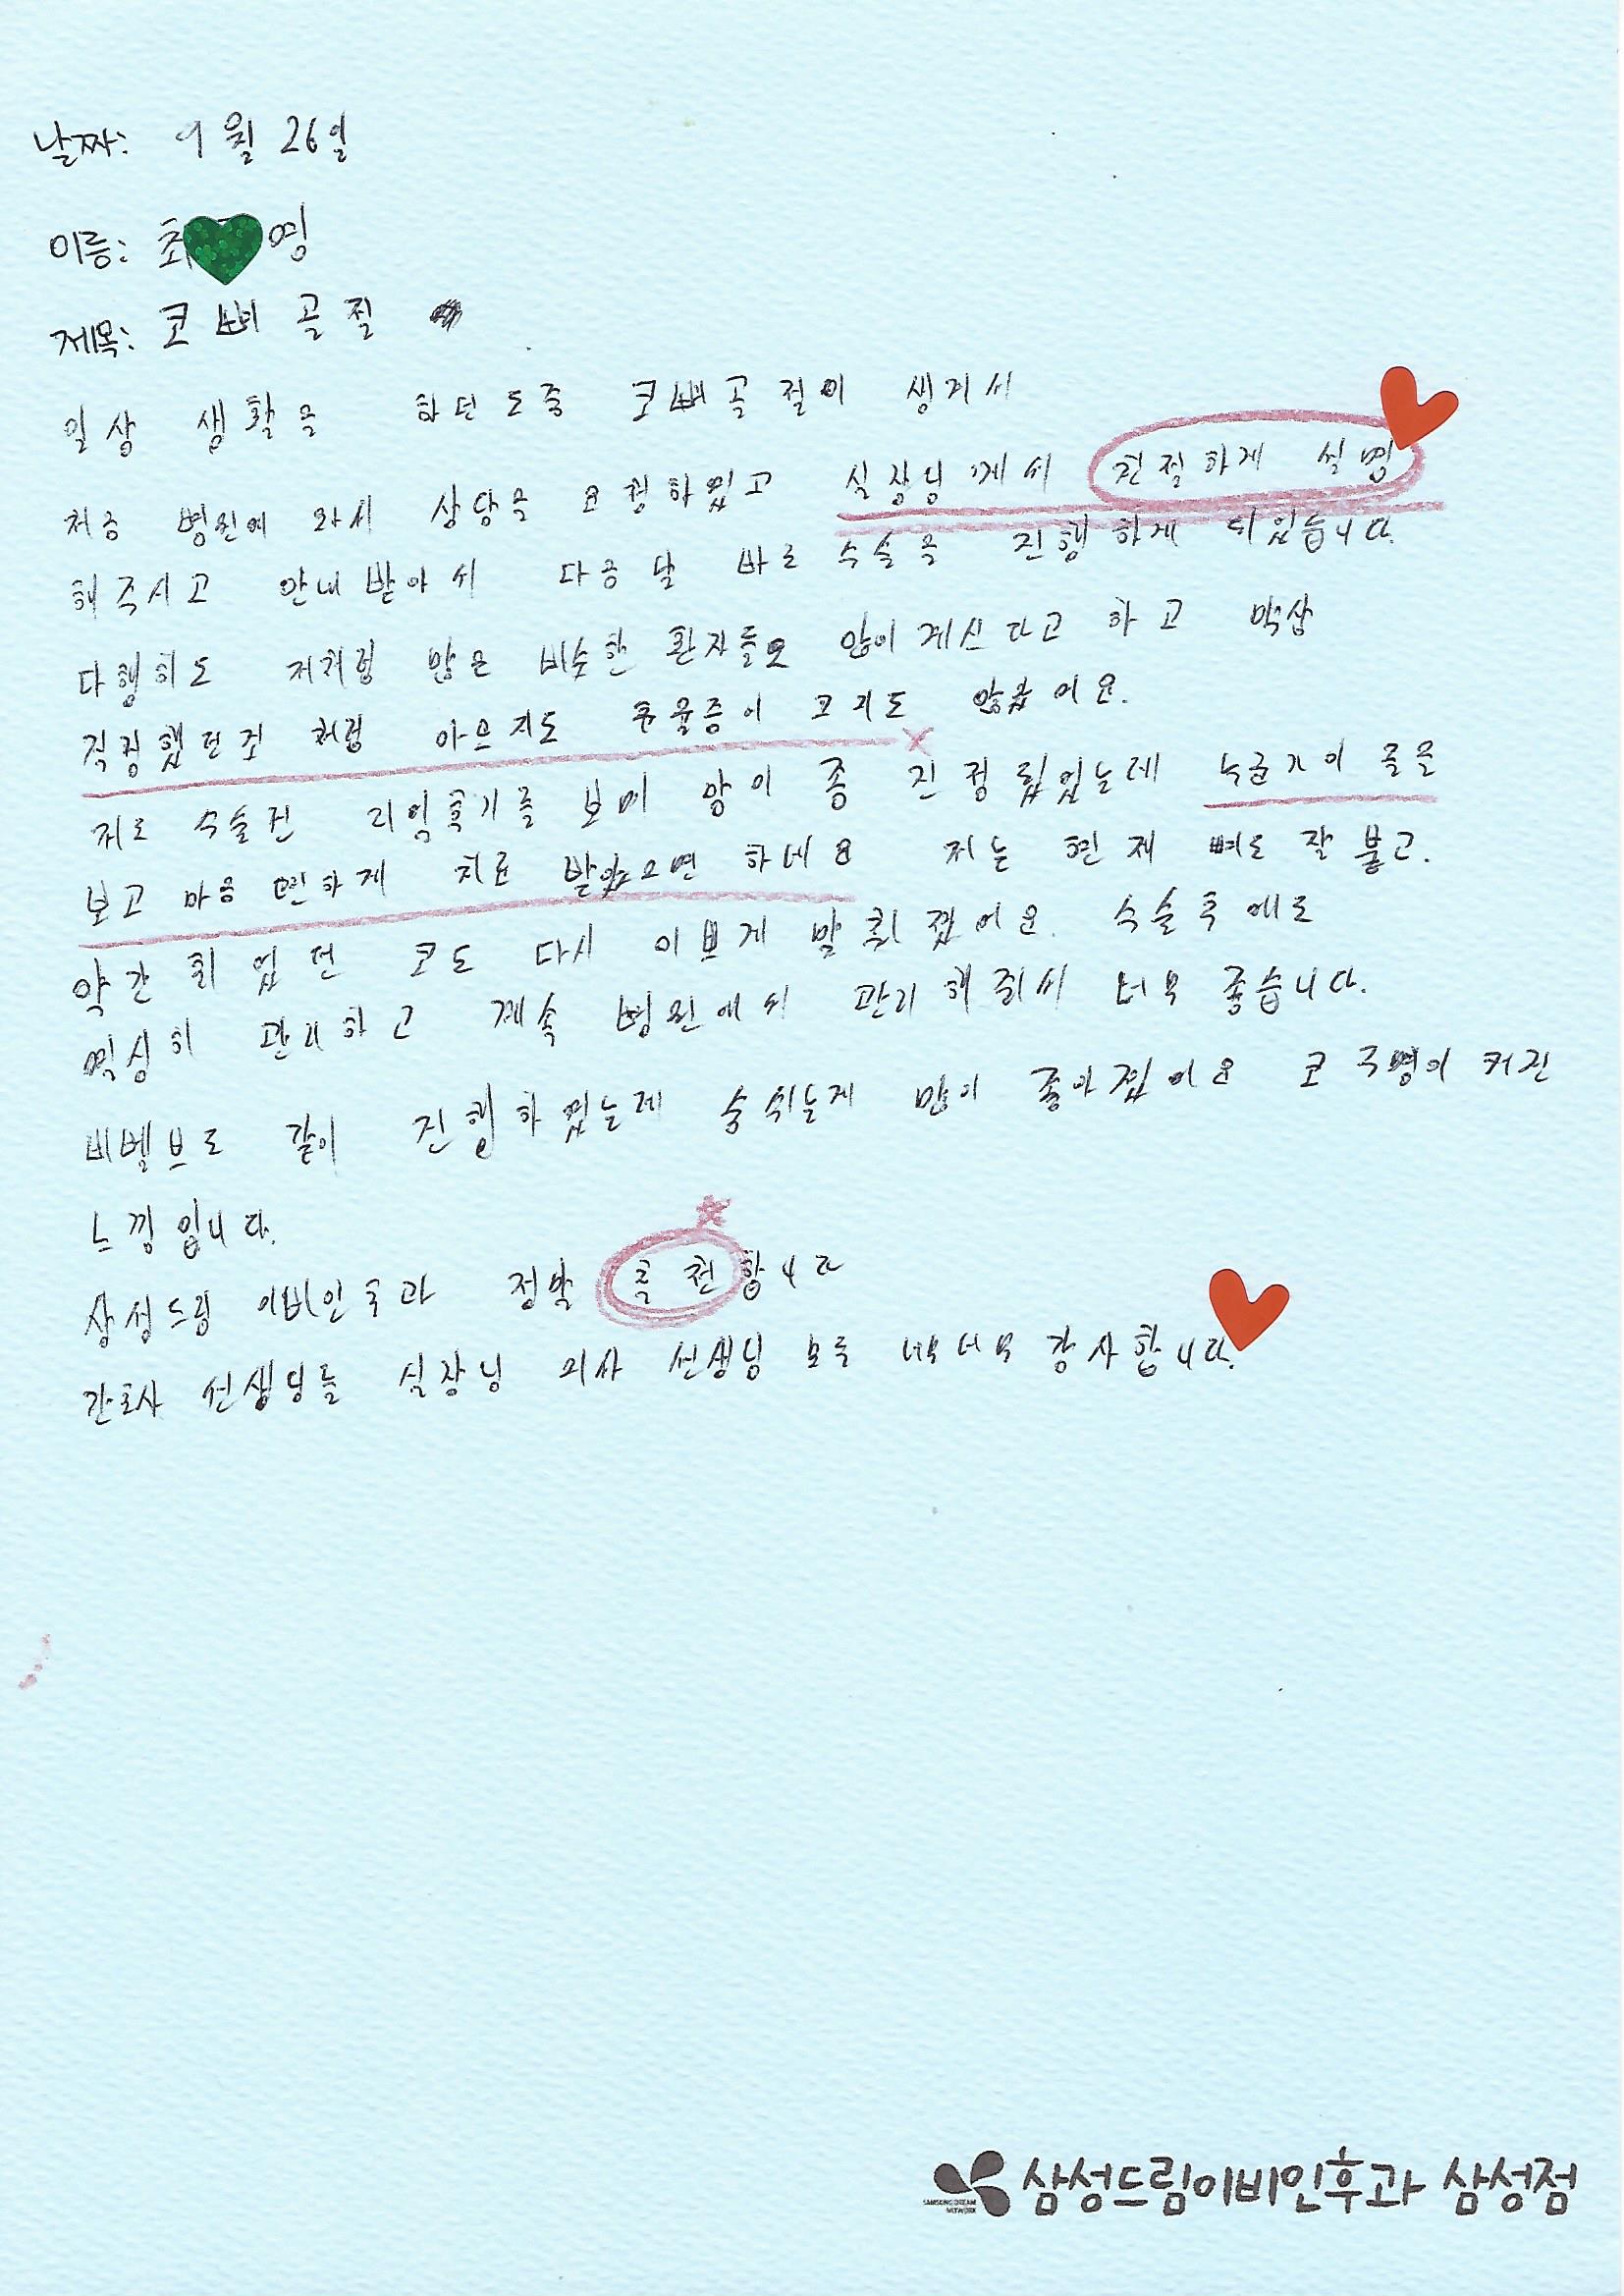 날짜: 9월 26일
이름: 최 영
제목: 코뼈 골절
일상 생활을 하던도중 코뼈골절이 생겨서
처음 병원에 와서 상담을 요청하였고 실장님께서 친절하게 설명
해주시고 안내받아서 다음날 바로 수술을 진행하게 되었습니다.
다행히도 저처럼 많은 비슷한 환자들도 많이계신다고 하고 막상
걱정했던것 처럼 아프지도 우울증이 오지도 않았어요.
저도 수술전 리얼후기를 보며 맘이 좀 진정됬었는데 누군가 이 글을
보고 마음 편하게 치료 받았으면 하네요 저는 현재 뼈도 잘 붙고.
약간 휘었던 코도 다시 이쁘게 맞춰졌어요. 수술후에도
열심히 관리하고 계속 병원에서 관리해줘서 너무 좋습니다.
비벨브도 같이 진행하였는데 숨쉬는게 많이 좋아졌어요 코구멍이 커진
느낌입니다.
삼성드림 이비인후과 정말 추천합니다
간호사 선생님들 실장님 의사 선생님 모두 너무너무 감사합니다.
삼성드림이비인후과 삼성점
SAMSUNG DREAM
NETWORK